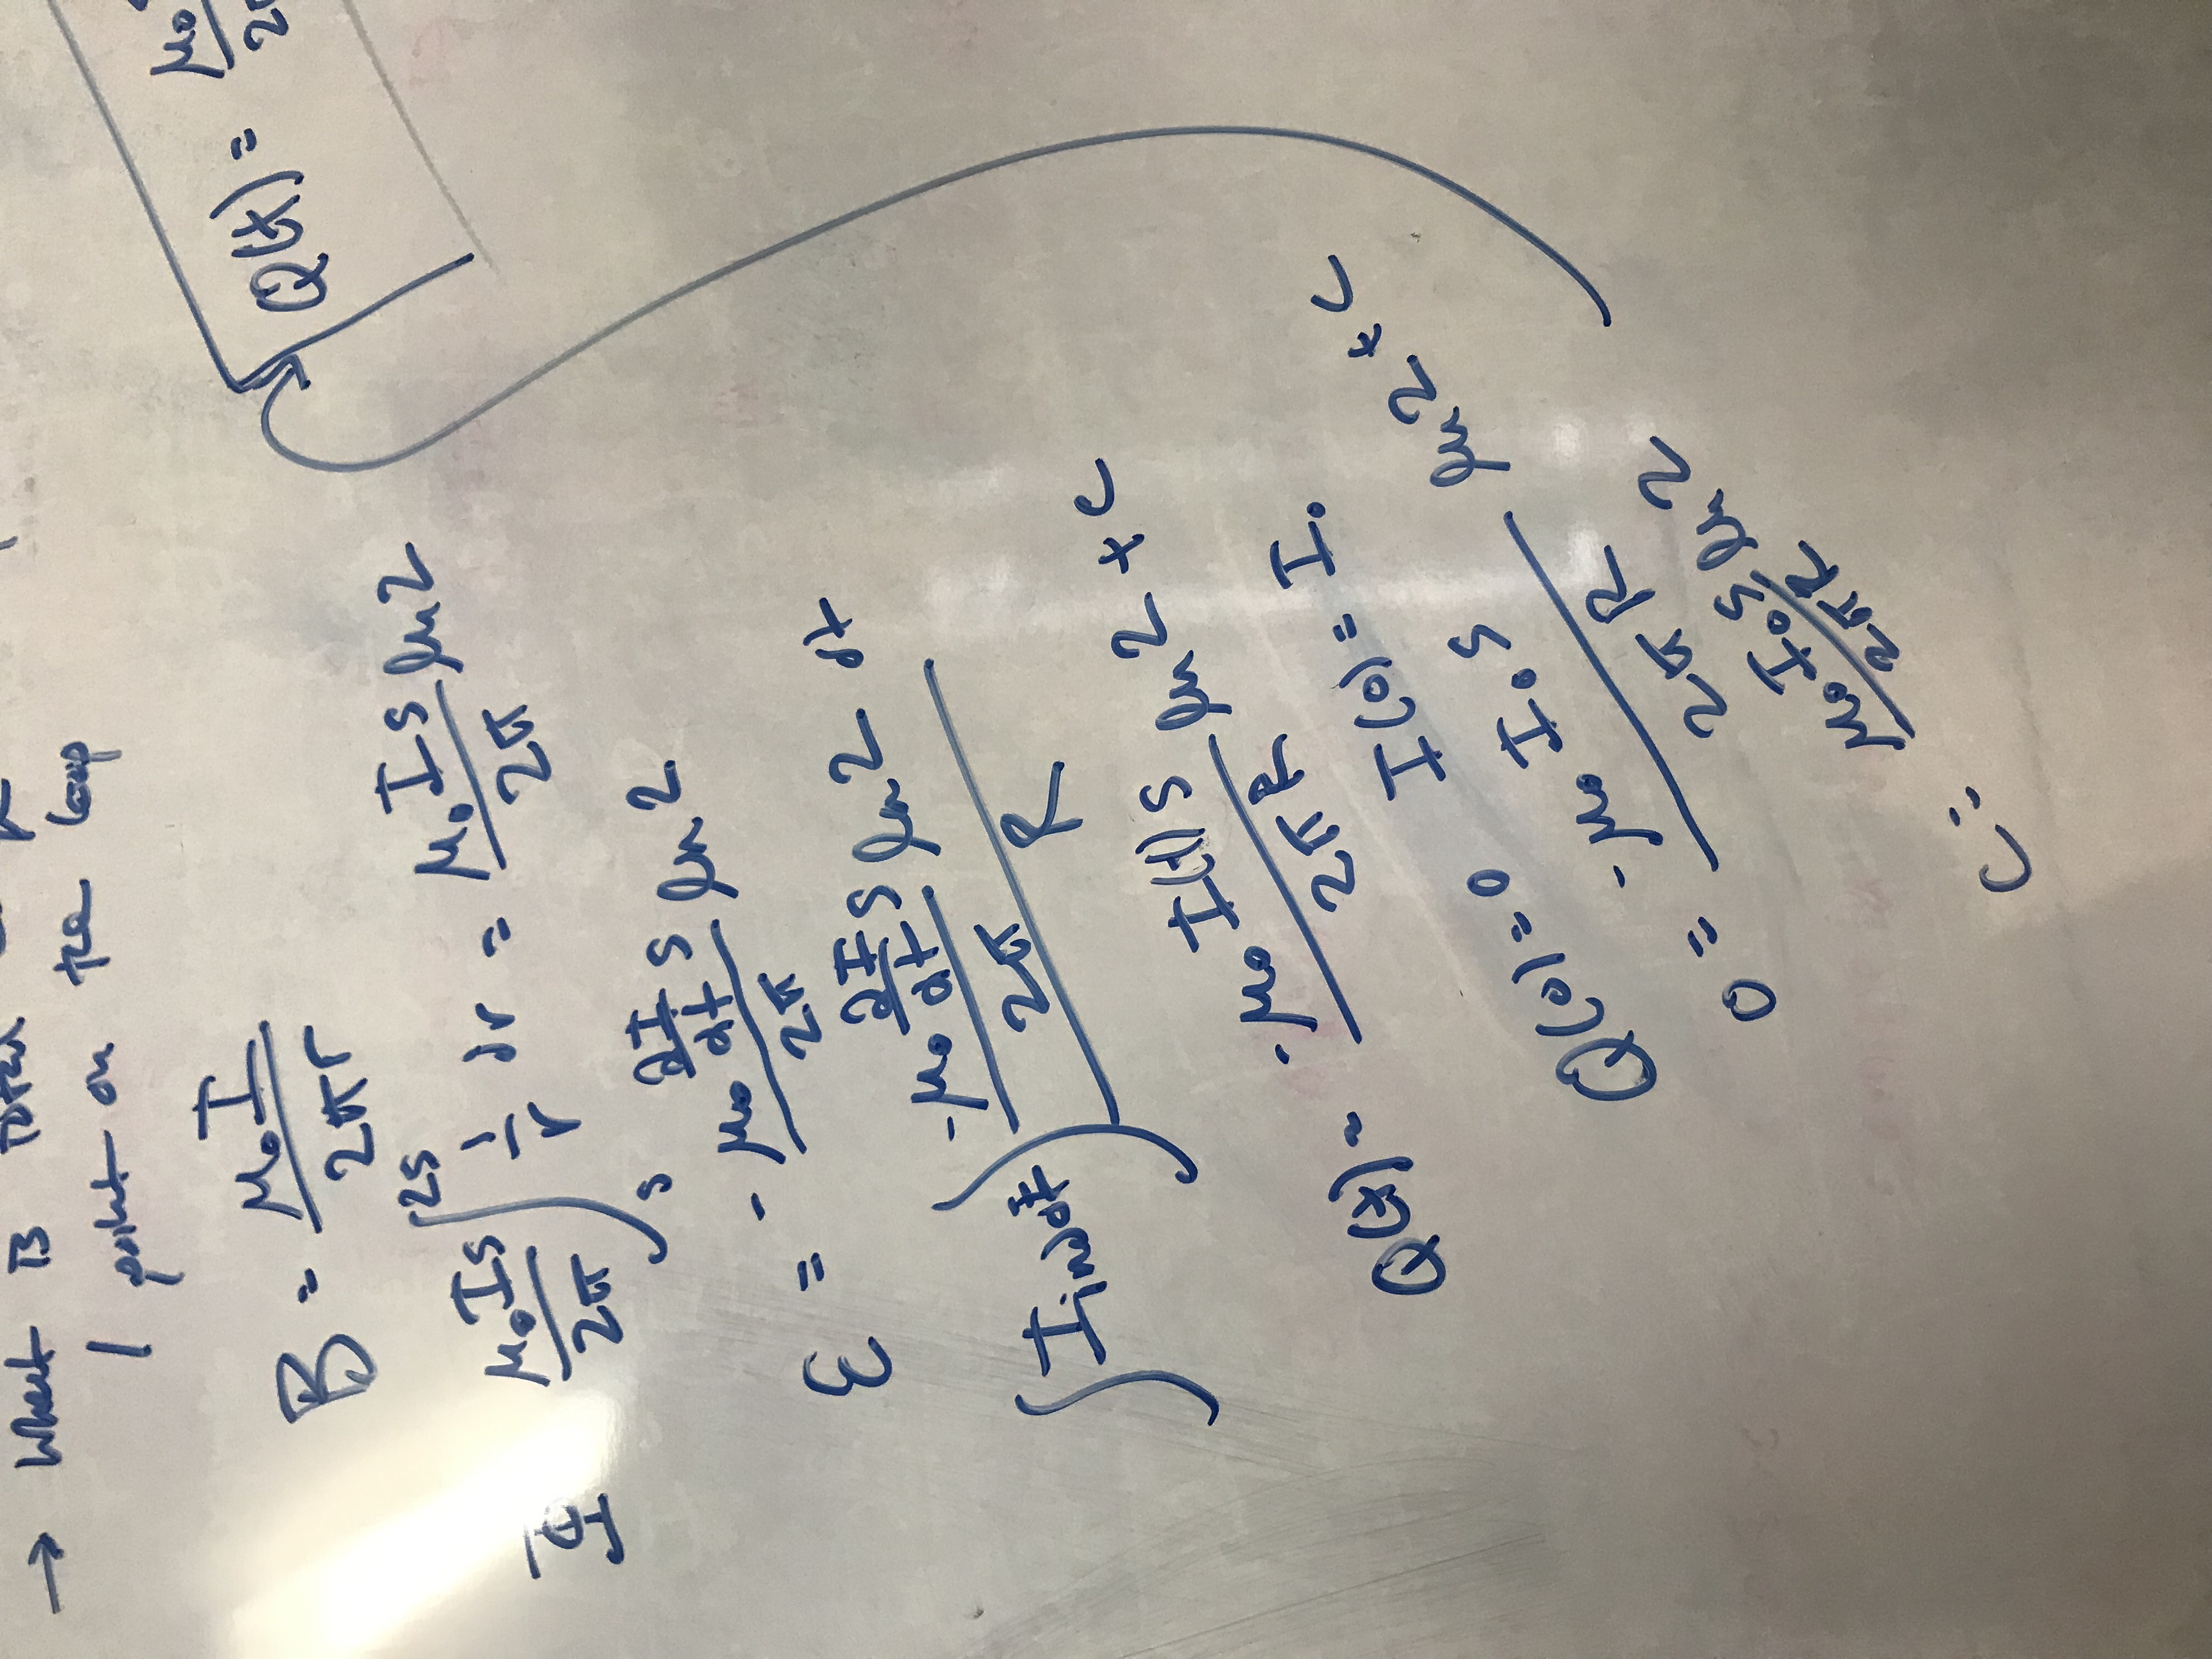 → What is
1 point on the loop
B = μ₀I / 2πr
Φ μ₀Is / 2π ∫ₛ²ˢ 1/r dr = μ₀Is / 2π ln 2
ε = - μ₀ dI/dt s / 2π ln 2
∫ I_ind dt ∫ -μ₀ dI/dt s / 2π ln 2 dt / R
Q(t) = -μ₀ I(t) s / 2πR ln 2 + C
Q(0) = 0 I(0) = I₀
0 = -μ₀ I₀ s / 2πR ln 2 + C
C = μ₀ I₀ s / 2πR ln 2
Q(t) = μ₀